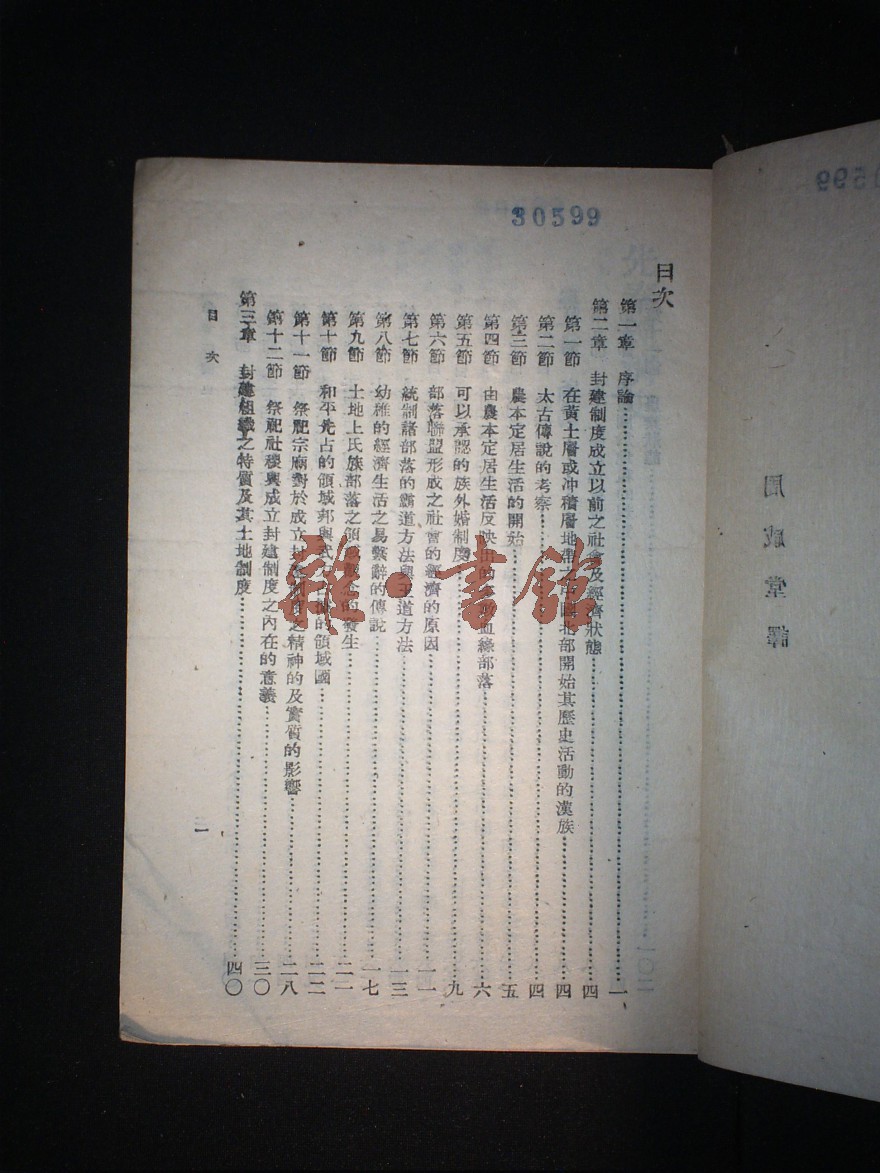 30599
目次
第一章 序論……一
第二章 封建制度成立以前之社會及經濟狀態……四
第一節 在黃土層或冲積層地帶之中國北部開始其歷史活動的漢族……四
第二節 太古傳說的考察……四
第三節 農本定居生活的開始……五
第四節 由農本定居生活反映出的 血緣部落……六
第五節 可以承認的族外婚制度……九
第六節 部落聯盟形成之社會的經濟的原因……一一
第七節 統制諸部落的霸道方法與王道方法……一三
第八節 幼稚的經濟生活之易繫辭的傳說……一七
第九節 土地上氏族部落之領域 的發生……二一
第十節 和平先占的領域邦與武 的領域國……二二
第十一節 祭祀宗廟對於成立封建制度之精神的及實質的影響……二八
第十二節 祭祀社稷與成立封建制度之內在的意義……三〇
第三章 封建組織之特質及其土地制度……四〇
目次
一
雜·書館
周咸堂譯